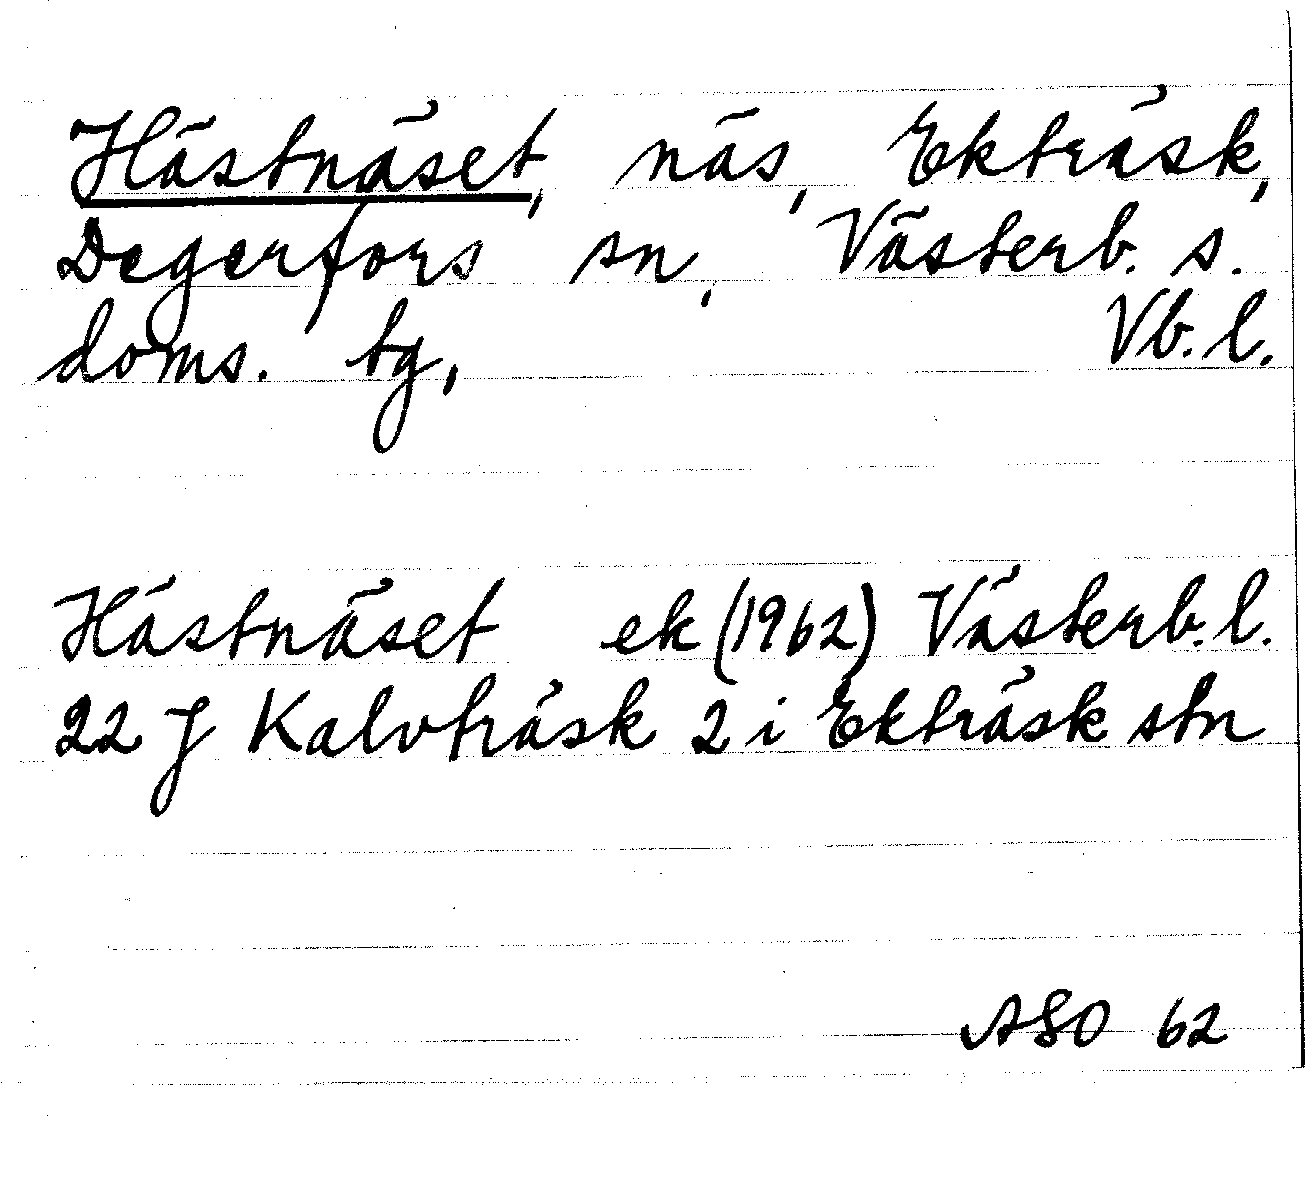 Hästnäset, näs, Ekträsk,
Degerfors sn, Västerb. s.
doms. tg, Vb. l.
Hästnäset ek (1962) Västerb. l.
22 J Kalvträsk 2 i Ekträsk stn
ASO 62